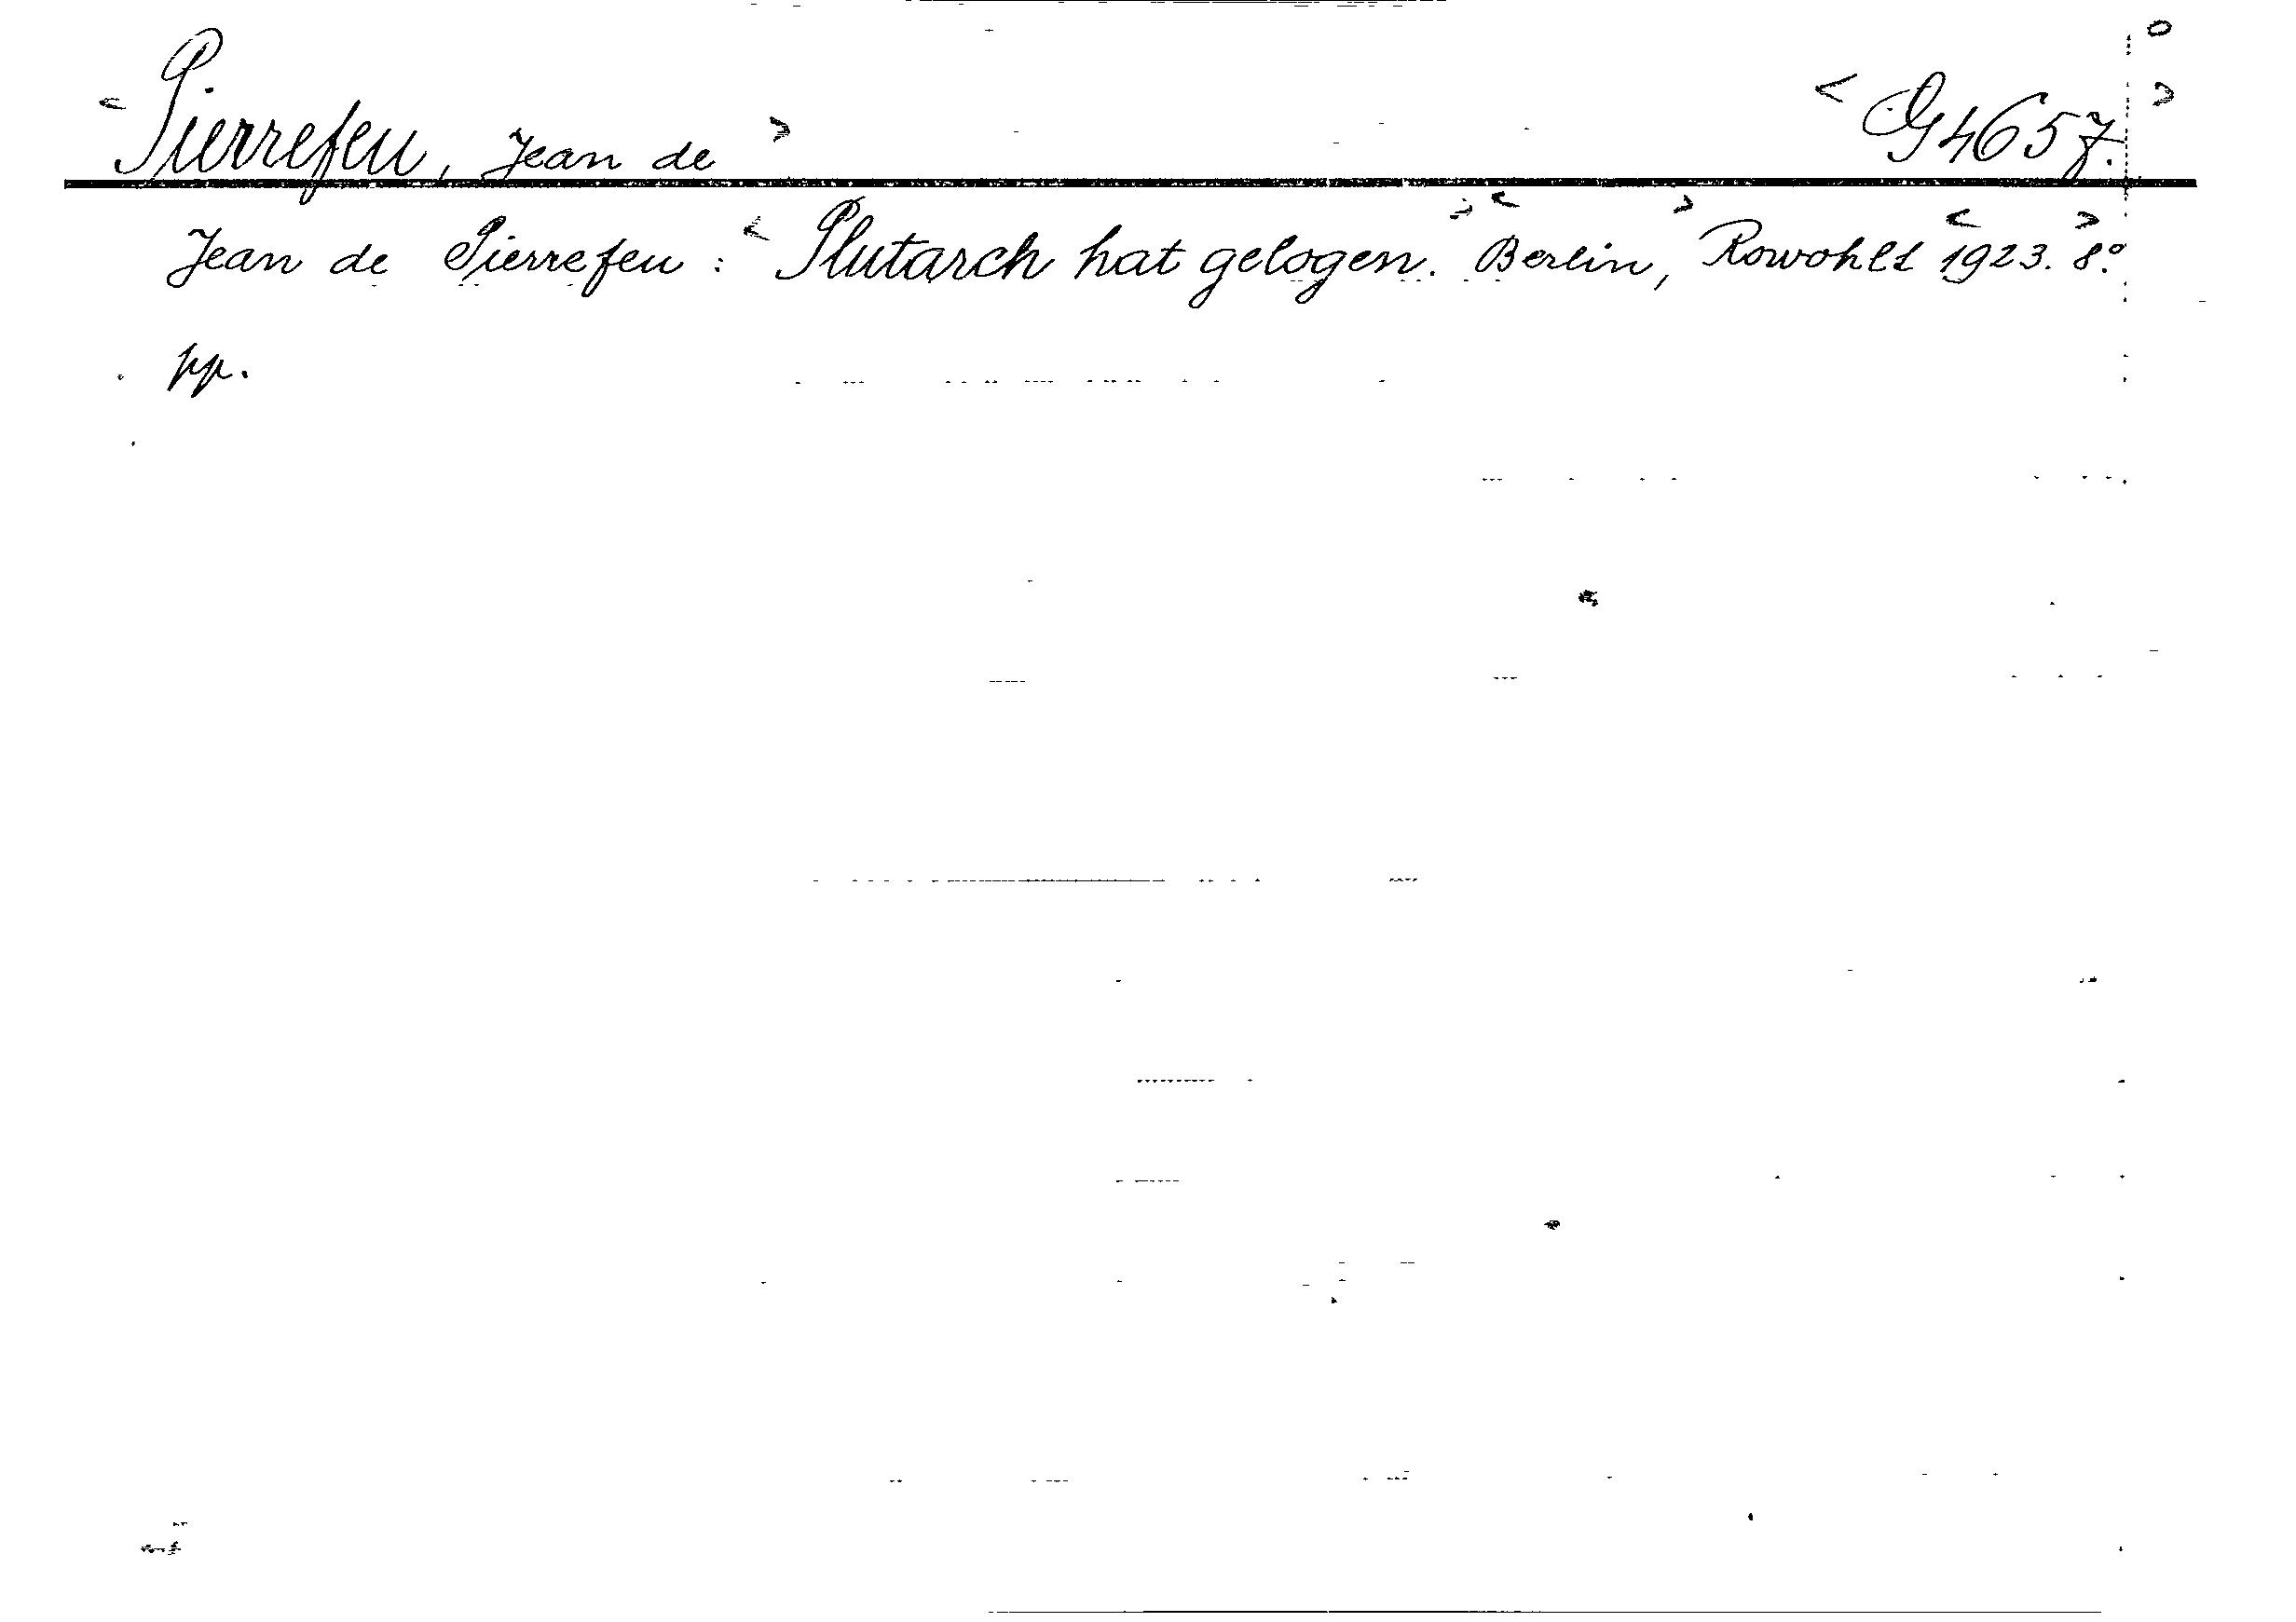 <Pierrefeu, Jean de> <G4657.>
Jean de Pierrefeu: <Plutarch hat gelogen.> <Berlin,> Rowohlt <1923.> 8°.
pp.